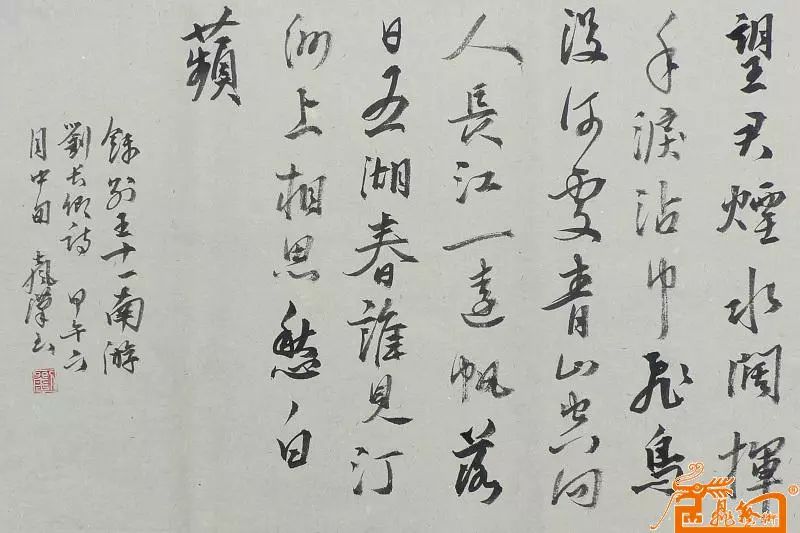 望君煙水闊揮
手淚沾巾飛鳥
沒何處青山空向
人長江一遠帆落
日五湖春誰見汀
洲上相思愁白
蘋
餞別王十一南游
劉長卿詩 甲午六
月中旬